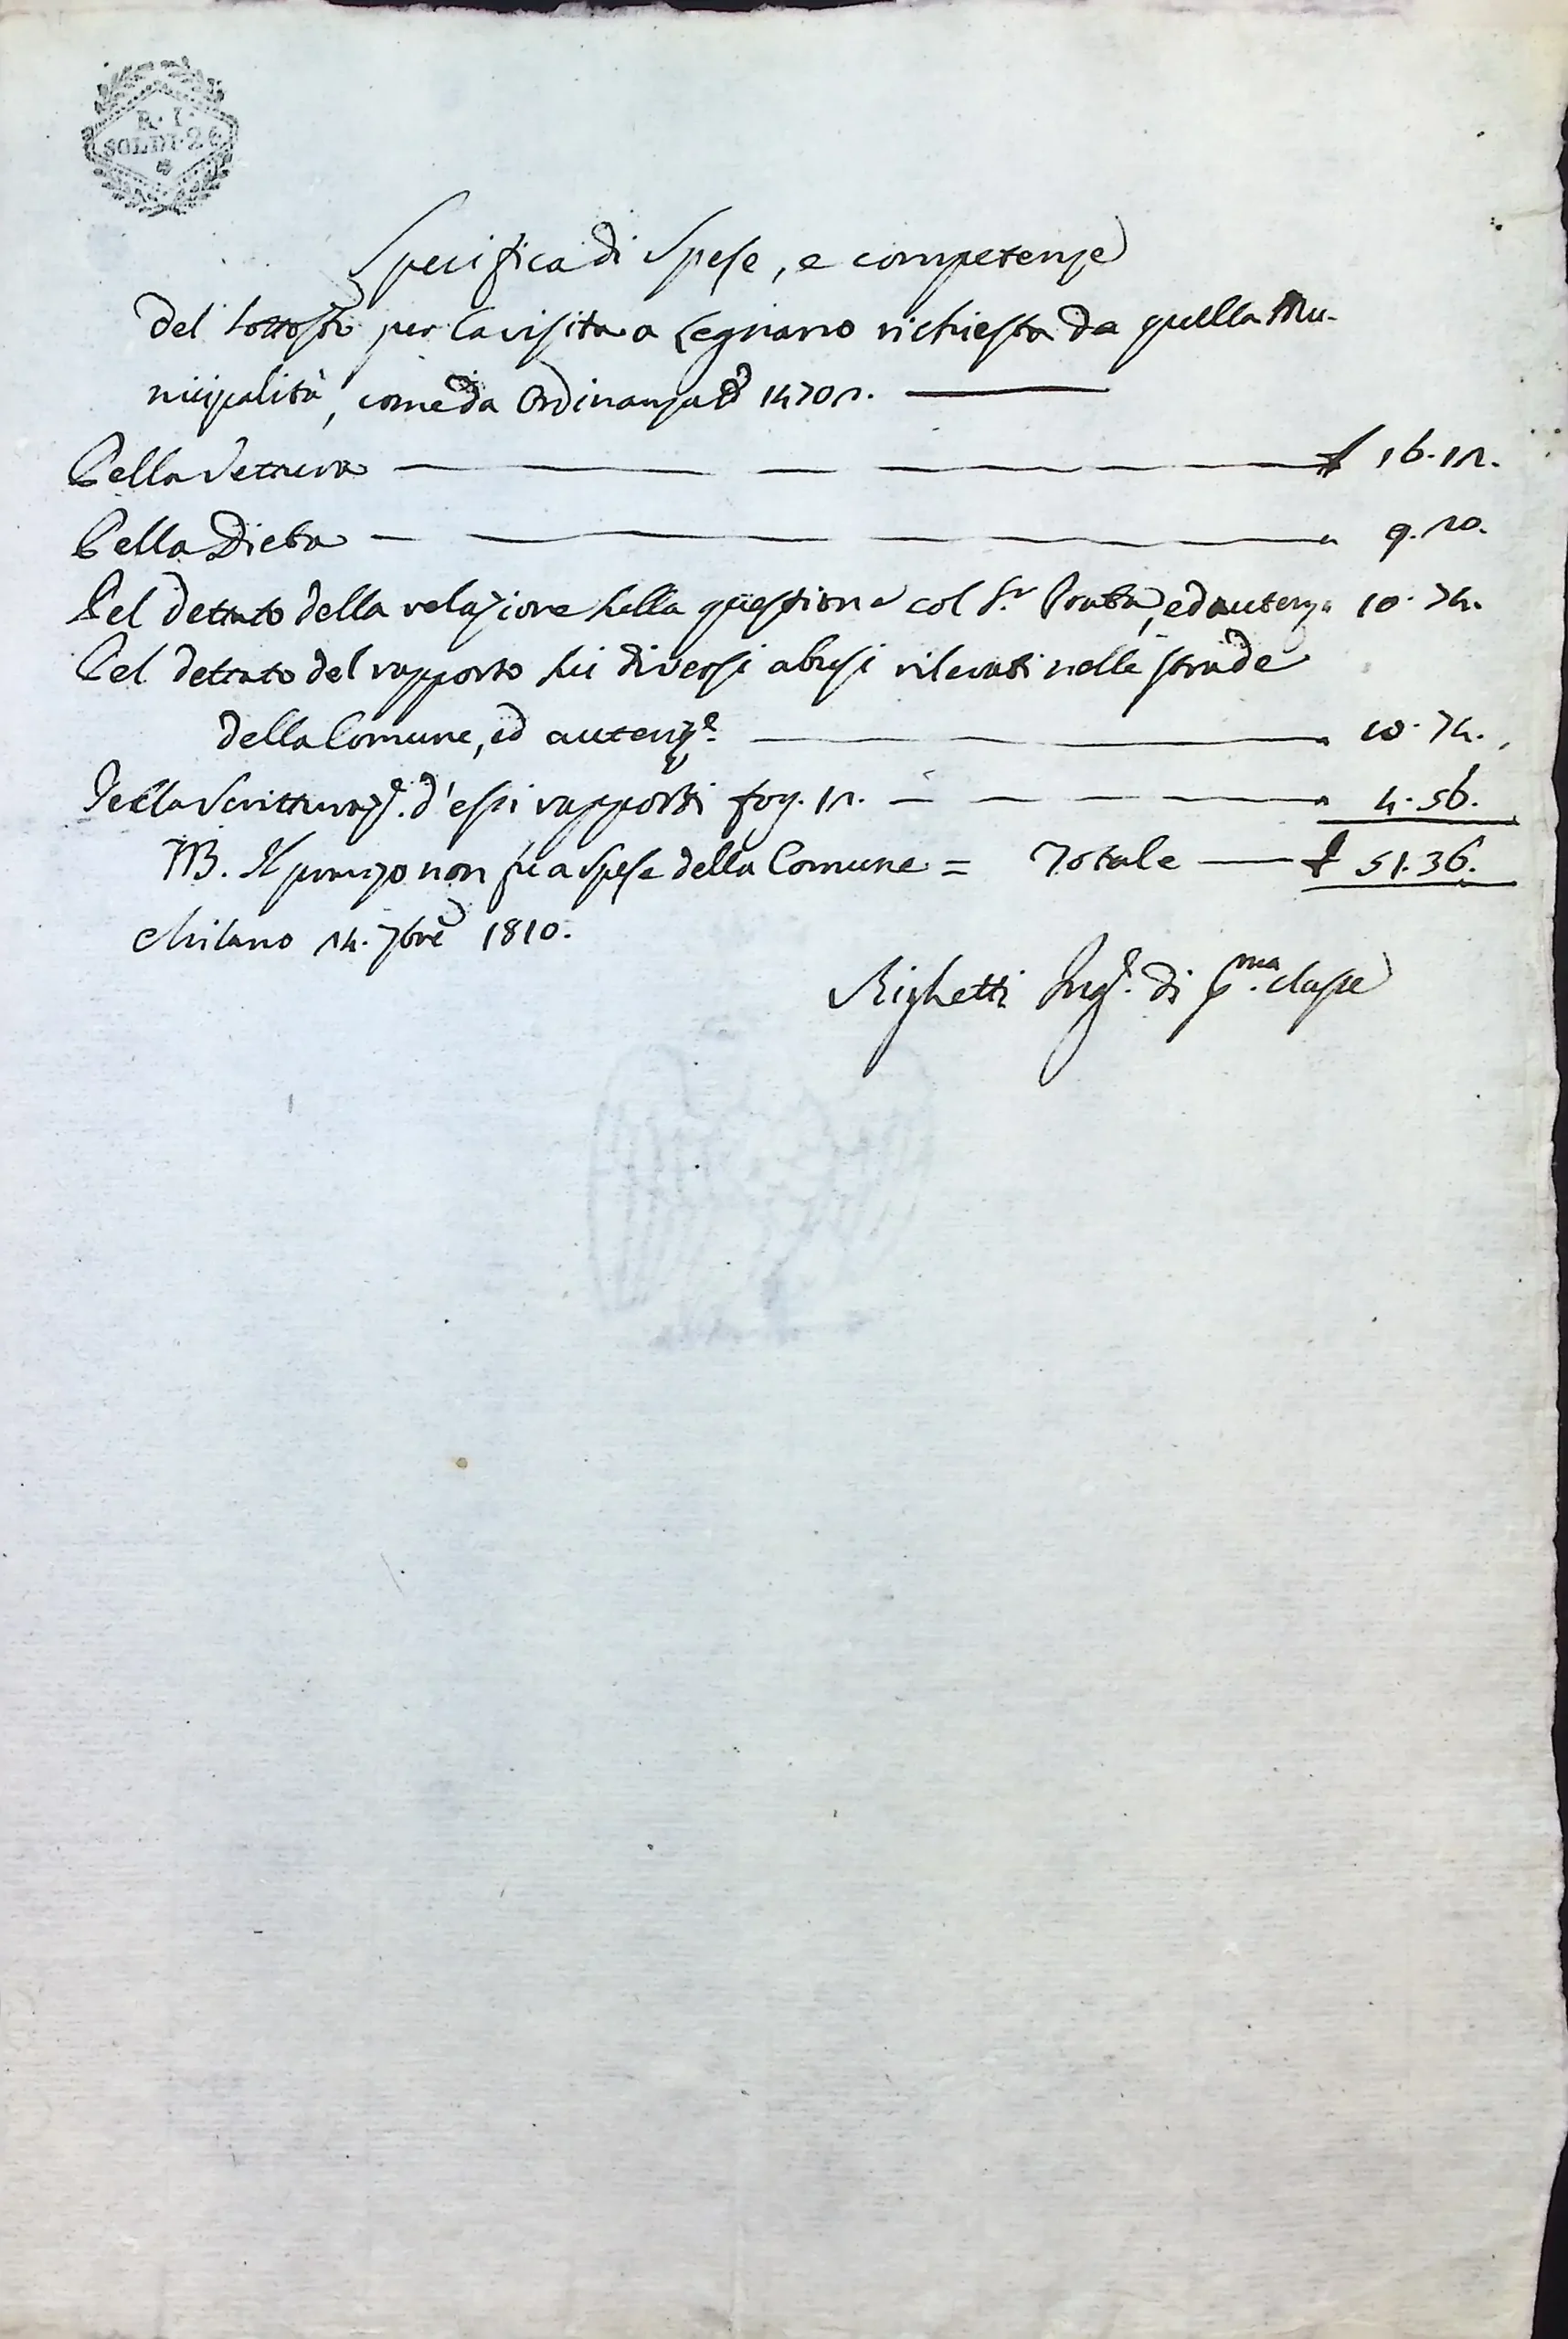 R. I.
SOLDI. 26
Specifica di Spese, e competenze
del Sottos.to per la visita a Legnano richiesta da quella Mu-
nicipalità, come da Ordinanza N.° 14702.
Pella Vettura £ 16.12.
Pella Dieta " 9.20.
Pel dettato della relazione sulla questione col S.r Prata, ed autenz. " 10.74.
Pel dettato del rapporto sui diversi abusi rilevati nelle strade
della Comune, ed autenz.e " 10.74.
Pella Scritturaz.e d'essi rapporti fog. 12. " 4.56.
NB. Il pranzo non fu a spese della Comune = Totale £ 51.36.
Milano 24. 7bre 1810.
Righetti Ing.e di p.ma classe